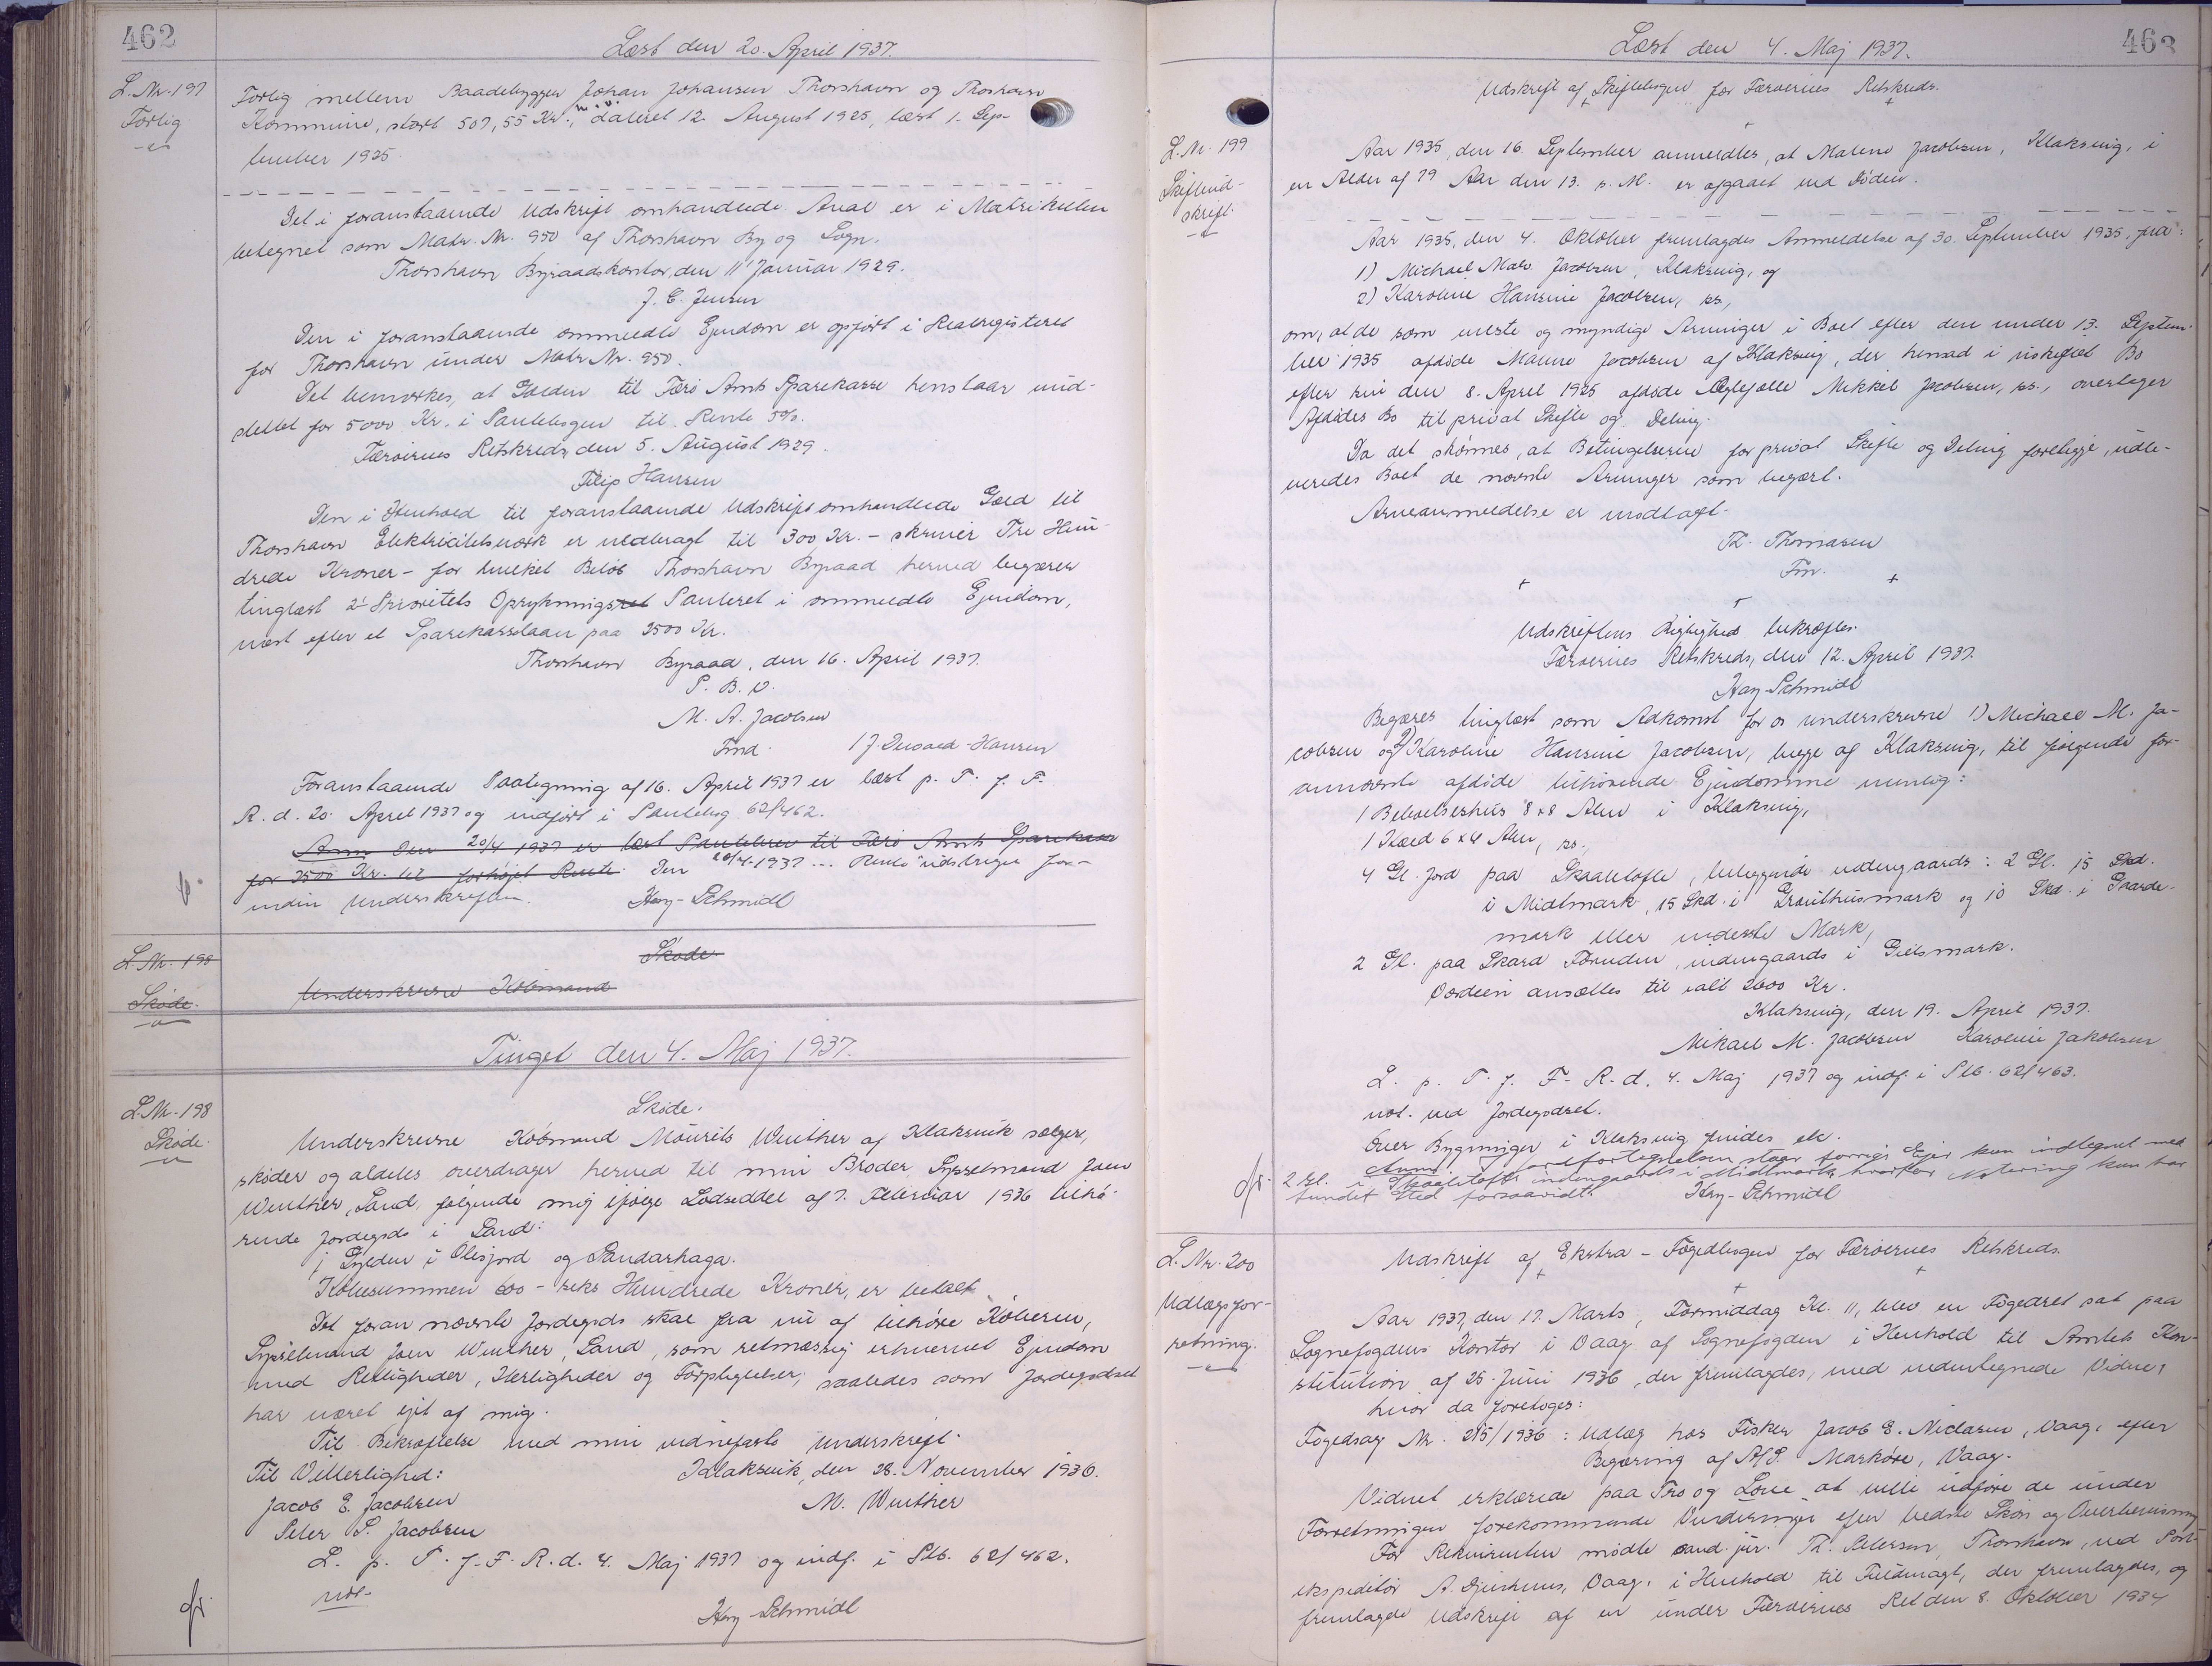 462
Læst den 20. April 1937.
L. Nr. 197
Forlig
Forlig mellem Baadebygger Johan Johansen Thorshavn og Thorshavn
Kommune, stort 507,55 Kr., m.v. dateret 12. August 1925, læst 1. Sep-
tember 1925.
Det i foranstaaende Udskrift omhandlede Areal er i Matrikulen
betegnet som Matr. Nr. 950 af Thorshavn By og Sogn.
Thorshavn Byraadskontor, den 11' Januar 1929.
J. C. Jensen
Den i foranstaaende ommeldte Ejendom er opført i Realregisteret
for Thorshavn under Matr Nr. 950.
Det bemærkes, at Gælden til Færø Amts Sparekasse henstaar uud-
slettet for 5000 Kr. i Pantebogen til Rente 5%.
Færøernes Retskreds, den 5. August 1929.
Filip Hansen
Den i Henhold til foranstaaende Udskrift omhandlede Gæld til
Thorshavn Elektricitetsværk er nedbragt til 300 Kr. - skriver Tre Hun-
drede Kroner - for hvilket Beløb Thorshavn Byraad herved begærer
tinglæst 2' Prioritets Oprykningsret Panteret i ommeldte Ejendom,
næst efter et Sparekasselaan paa 2500 Kr.
Thorshavn Byraad, den 16. April 1937.
P. B. V.
M. A. Jacobsen
Fmd. / J. Dewald-Hansen
Foranstaaende Paategning af 16. April 1937 er læst p. T. f. F.
R. d. 20. April 1937 og indført i Pantebog 62/462.
Anm Den 20/4 1937 er læst Pantebrev til Færø Amts Sparekasse
for 2500 Kr. til forhøjet Rente. Den 20/4 1937 ... Rente" udstreget for-
inden Underskriften. Kay-Schmidt
L. Nr. 198
Skøde.
Skøde
Underskrevne Købmand
Tinget den 4. Maj 1937.
L. Nr. 198
Skøde.
Skøde.
Underskrevne Købmand Mourits Winther af Klaksvik sælger,
skøder og aldeles overdrager herved til min Broder Sysselmand Joen
Winther, Sand, følgende mig ifølge Lodseddel af 7. Februar 1936 tilhø-
rende Jordegods i Sand:
1 Gylden i Olesjord og Sandarhaga.
Købesummen 600 - seks Hundrede Kroner, er betalt.
Det foran nævnte Jordegods skal fra nu af tilhøre Køberen,
Sysselmand Joen Winther, Sand, som retmæssig erhvervet Ejendom
med Rettigheder, Herligheder og Forpligtelser, saaledes som Jordegodset
har været ejet af mig.
Til Bekræftelse med min vidnefaste Underskrift.
Til Vitterlighed: Klaksvik, den 28. November 1936.
Jacob E. Jacobsen M. Winther
Peter P. Jacobsen
L. p. T. f. F. R. d. 4. Maj 1937 og indf. i Ptb. 62/462.
not.
Kay-Schmidt
463
Læst den 4. Maj 1937.
Udskrift af Skiftebogen for Færøernes Retskreds.
L. Nr. 199
Skifteud-
skrift.
Aar 1935, den 16. September anmeldtes, at Malene Jacobsen, Klaksvig, i
en Alder af 79 Aar den 13. s. M. er afgaaet ved Døden.
Aar 1935, den 4. Oktober fremlagdes Anmeldelse af 30. September 1935, fra:
1) Michael Mar. Jacobsen, Klaksvig, og
2) Karoline Hansine Jacobsen, ss.,
om, at de som eneste og myndige Arvinger i Boet efter den under 13. Septem-
ber 1935 afdøde Malene Jacobsen af Klaksvig, der hensad i uskiftet Bo
efter sin den 8. April 1925 afdøde Ægtefælle Mikkel Jacobsen, ss., overtager
Afdødes Bo til privat Skifte og Deling.
Da det skønnes, at Betingelserne for privat Skifte og Deling foreligge, udle-
veredes Boet de nævnte Arvinger som begært.
Arveanmeldelse er modtaget.
Th. Thomasen
Fm.
Udskriftens Rigtighed bekræftes.
Færøernes Retskreds, den 12. April 1937.
Kay-Schmidt
Begæres tinglæst som Adkomst for os underskrevne 1) Michael M. Ja-
cobsen og 2) Karoline Hansine Jacobsen, begge af Klaksvig, til følgende for-
annævnte afdøde tilhørende Ejendomme nemlig:
1 Beboelseshus 8 x 8 Alen i Klaksvig,
1 Kæld 6 x 4 Alen, ss.
4 Gl. Jord paa Skaaletofte, beliggende uddengaards: 2 Gl. 15 Skd.
i Midtmark, 15 Skd. i Grauthusmark og 10 Skd. i Gaarde-
mark eller inderste Mark,
2 Gl. paa Skard Fornuden, indengaards i Geilsmark.
Værdien ansættes til ialt 2600 Kr.
Klaksvig, den 19. April 1937.
Mikael M. Jacobsen Karoline Jakobsen
L. p. T. f. F. R. d. 4. Maj 1937 og indf. i Ptb. 62/463.
not. ved Jordegodset.
Over Bygninger i Klaksvig findes ek.
Anm. I Jordfortegnelsen staar forrige Ejer kun indtegnet med
2 Gl. i Skaaletofte indengaards i Midtmark, hvorfor Notering kun har
fundet Sted forsaavidt. Kay-Schmidt
L. Nr. 200
Udlægsfor-
retning.
Udskrift af Ekstra-Fogedbogen for Færøernes Retskreds.
Aar 1937, den 17. Marts, Formiddag Kl. 11, blev en Fogedret sat paa
Sognefogdens Kontor i Vaag af Sognefogden i Henhold til Amtets Kon-
stitution af 25. Juni 1936, der fremlagdes, med undertegnede Vidne,
hvor da foretoges:
Fogedsag Nr. 215/1936: Udlæg hos Fisker Jacob E. Niclasen, Vaag, efter
Begæring af A/S. Markøre, Vaag.
Vidnet erklærede paa Tro og Love at ville udføre de under
Forretningen forekommende Vurderinger efter bedste Skøn og Overbevisning
For Rekvirenten mødte cand. jur. Th. Petersen, Thorshavn, ved Post-
ekspeditør A. Djurhuus, Vaag, i Henhold til Fuldmagt, der fremlagdes, og
fremlagde Udskrift af en under Færøernes Ret den 8. Oktober 1934